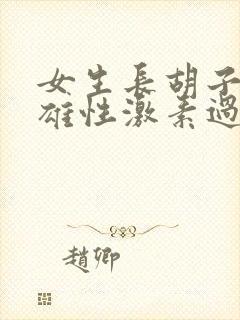 女生長胡子
雄性激素過
趙卿